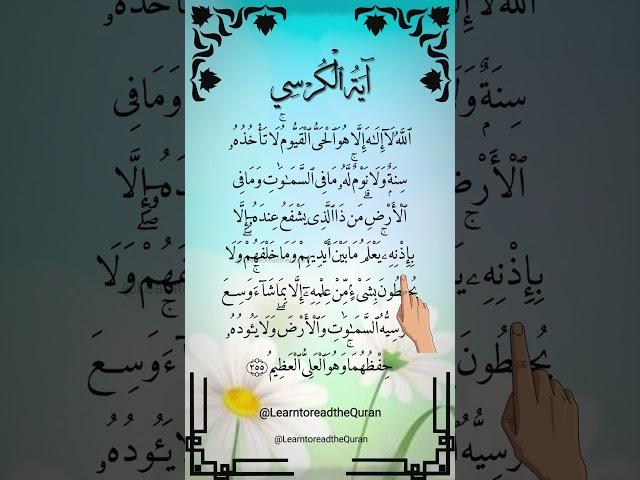 آيَةُ ٱلْكُرْسِي
ٱللَّهُ لَآ إِلَٰهَ إِلَّا هُوَ ٱلْحَىُّ ٱلْقَيُّومُ ۚ لَا تَأْخُذُهُۥ
سِنَةٌ وَلَا نَوْمٌ ۚ لَّهُۥ مَا فِى ٱلسَّمَٰوَٰتِ وَمَا فِى
ٱلْأَرْضِ ۗ مَن ذَا ٱلَّذِى يَشْفَعُ عِندَهُۥٓ إِلَّا
بِإِذْنِهِۦ ۚ يَعْلَمُ مَا بَيْنَ أَيْدِيهِمْ وَمَا خَلْفَهُمْ ۖ وَلَا
يُحِيطُونَ بِشَىْءٍ مِّنْ عِلْمِهِۦٓ إِلَّا بِمَا شَآءَ ۚ وَسِعَ
ٱلسَّمَٰوَٰتِ وَٱلْأَرْضَ ۖ وَلَا يَـُٔودُهُۥ
حِفْظُهُمَا ۚ وَهُوَ ٱلْعَلِىُّ ٱلْعَظِيمُ ٢٥٥
@LearntoreadtheQuran
@LearntoreadtheQuran